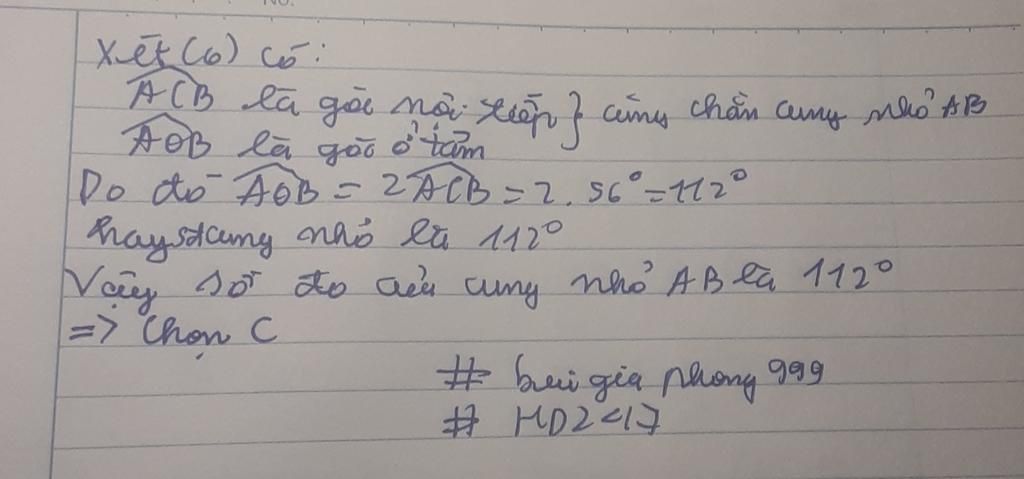 Xét (O) có:
ACB là góc nội tiếp } cùng chắn cung nhỏ AB
AOB là góc ở tâm
Do đó AOB = 2ACB = 2. 56° = 112°
hay sđ cung nhỏ là 112°
Vậy số đo của cung nhỏ AB là 112°
=> Chọn C
# bui gia phong 999